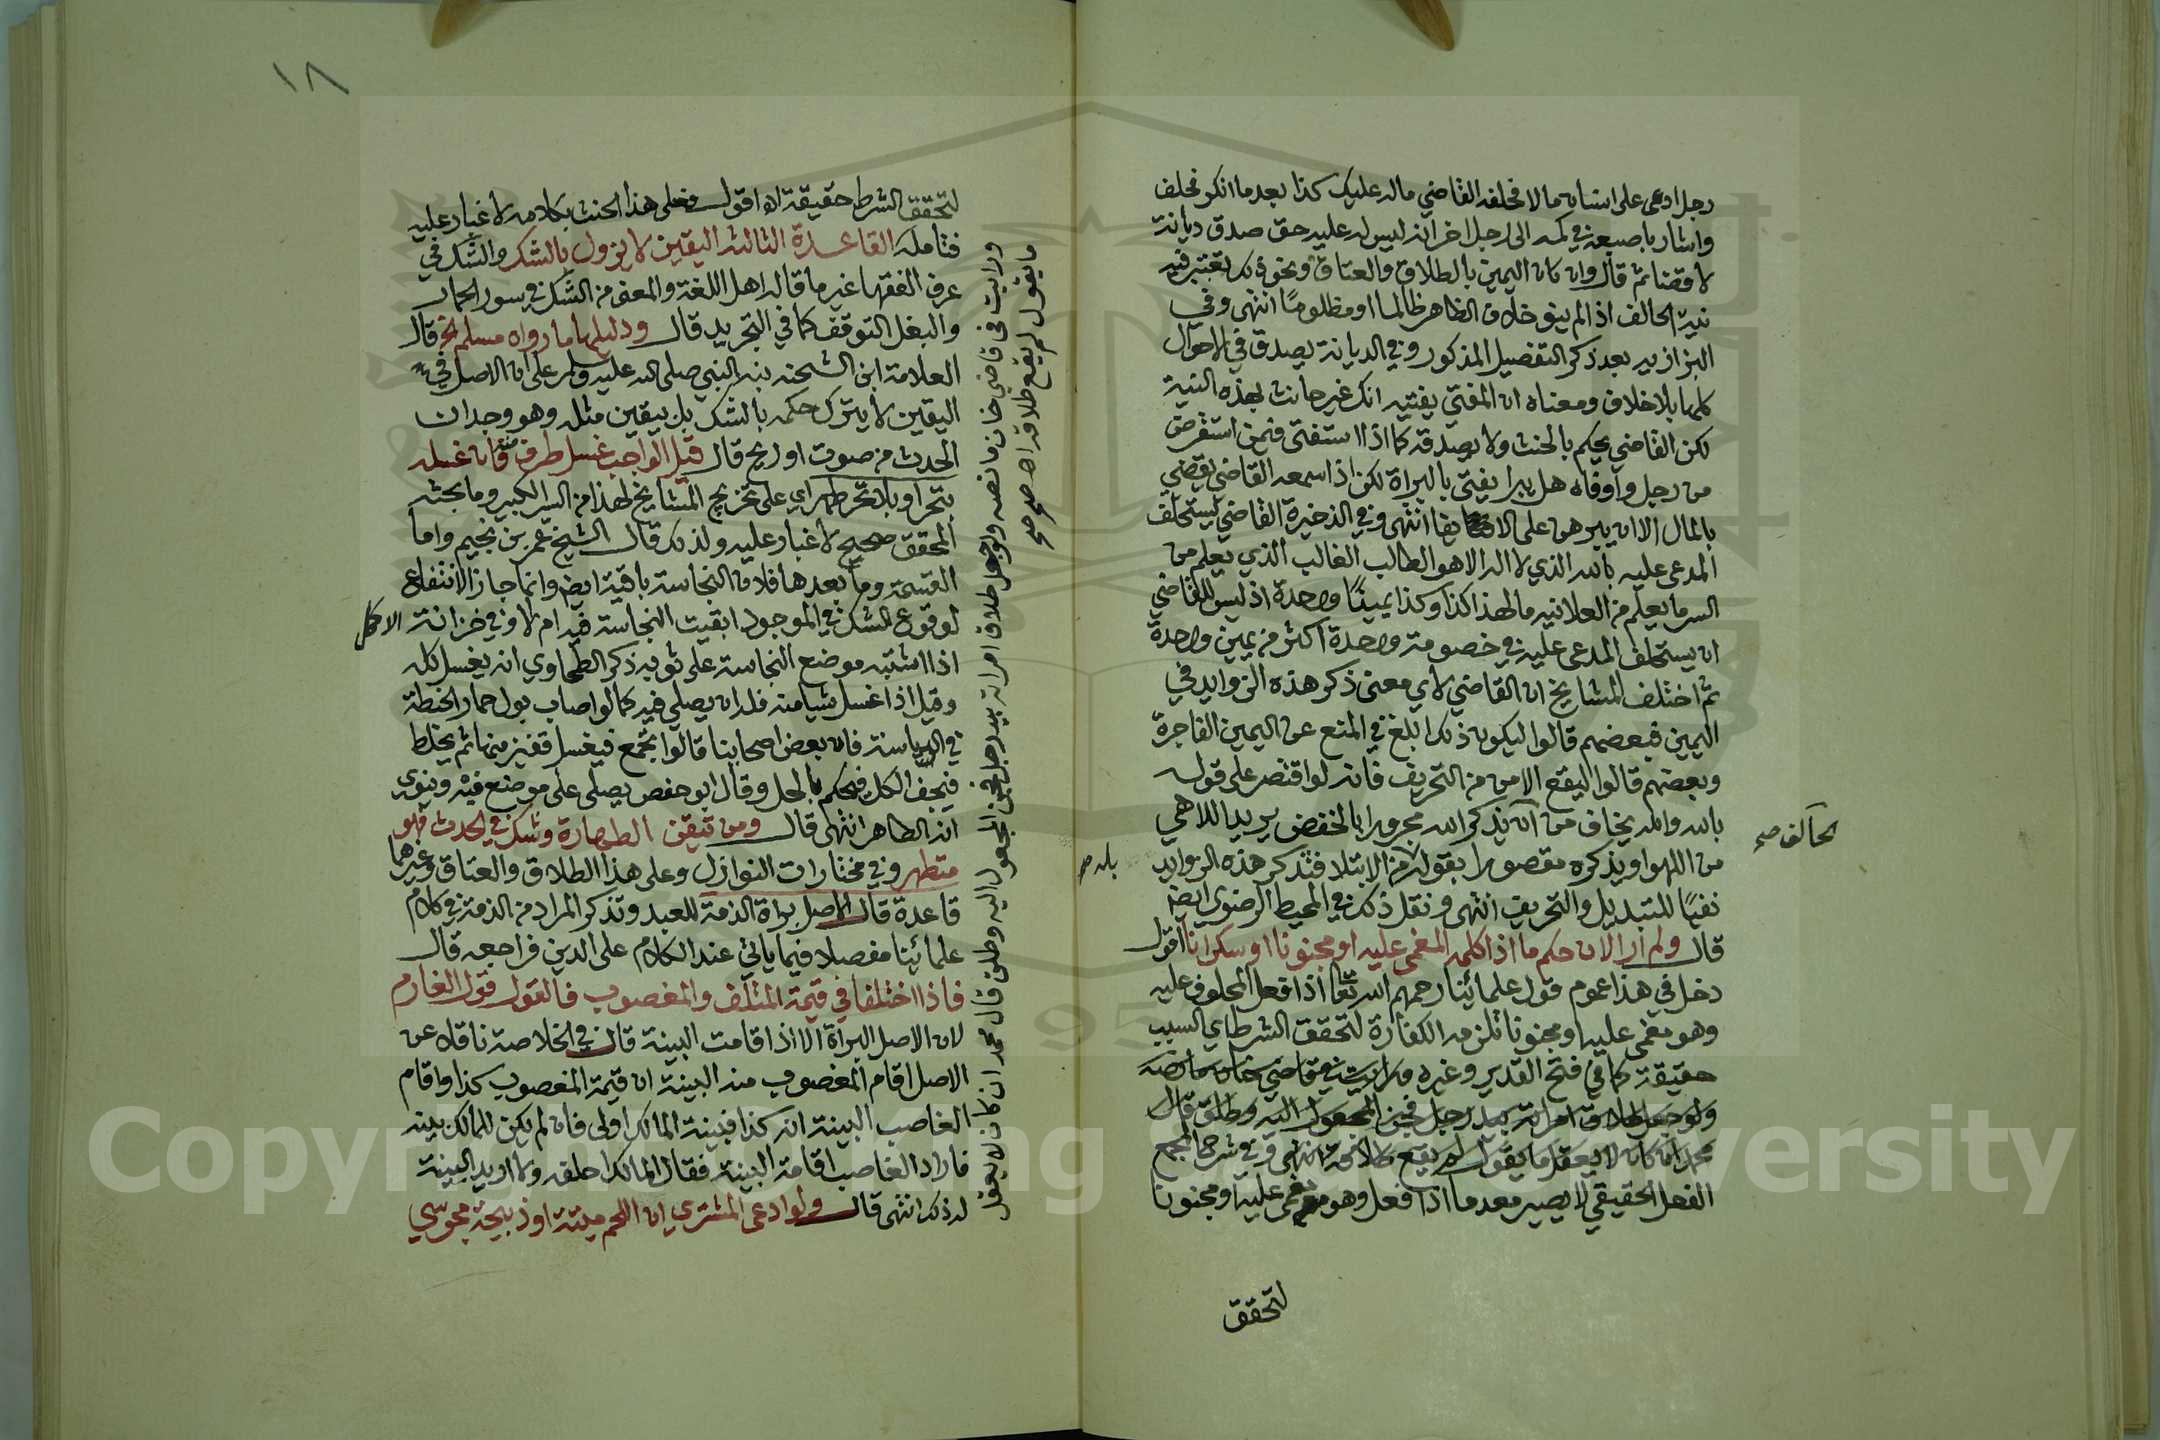 رجل ادعى على انسان مالا فحلفه القاضي ماله عليك كذا بعد ما انكر فحلف
واشار باصبعه في كمه الى رجل اخر انه ليس له عليه حق صدق ديانة
لا قضاء ثم قال وان كان اليمين بالطلاق والعتاق ونحو ذلك تعتبر فيه
نية الحالف اذا لم ينو خلاف الظاهر ظالما او مظلوما انتهى وفي
البزازيه بعد ذكر التفصيل المذكور وفي الديانة يصدق في الاحوال
كلها بلا خلاف ومعناه ان المفتي يفتيه انك غير حانث بهذه النية
لكن القاضي يحكم بالحنث ولا يصدقه كما اذا استفتى فيمن استقرض
من رجل واوفاه هل يبرا يفتي بالبراة لكن اذا سمعه القاضي يقضي
بالمال الا ان يبرهن على الايفا انتهى وفي الذخيرة القاضي يستحلف
المدعى عليه بالله الذي لا اله الا هو الطالب الغالب الذي يعلم من
السر ما يعلم من العلانيه ما لهذا كذا وكذا يمينًا واحدة اذ ليس للقاضي
ان يستحلف المدعى عليه في خصومة واحدة اكثر من يمين واحدة
ثم اختلف المشايخ ان القاضي لاي معنى ذكر هذه الزوايد في
اليمين فبعضهم قالوا ليكون ذلك ابلغ في المنع عن اليمين الفاجرة
وبعضهم قالوا ليقع الامن من التحريف فانه لو اقتصر على قوله
بالله والله يخاف من ان يذكر الله مجرورا بالخفض يريد اللاهي
الحالف صح
من اللهو او يذكره مقصورا بقوله من الابتلا فتذكر هذه الزوايد
بله صح
نفيًا للتبديل والتحريف انتهى ونقل ذلك في المحيط الرضوي ايضا
قال ولم ار الان حكم ما اذا كلمه المغمى عليه او مجنونا او سكرانا اقول
دخل في هذا عموم قول علمائنا رحمهم الله تعا اذا فعل المحلوف عليه
وهو مغمى عليه او مجنونا تلزمه الكفارة لتحقق الشرط اي السبب
حقيقة كما في فتح القدير وغيره ورايت في قاضي خان ما نصه
ولو جعل طلاق امراته بيد رجل فجن المجعول اليه وطلق قال
محمد ان كان لا يعقل ما يقول لم يقع طلاقه انتهى وفي شرح المجمع
الفعل الحقيقي لا يصير معدما اذا فعل وهو مغمى عليه او مجنونا
لتحقق
١٨
لتحقق الشرط حقيقة اه اقول فعلى هذا الحنث بكلامه لا غبار عليه
فتامله القاعدة الثالثه اليقين لا يزول بالشك والشك في
عرف الفقها غير ما قاله اهل اللغة والمعنى من الشك في سور الحمار
والبغل التوقف كما في التجريد قال ودليلها ما رواه مسلم الخ قال
العلامة ابن الشحنه نبه النبي صلى الله عليه وسلم على ان الاصل في
اليقين لا يترك حكمه بالشك بل بيقين مثله وهو وجدان
الحدث من صوت او ريح قال قيل الواجب غسل طرف منه فان غسله
بتحر او بلا تحر طهر اي على تخريج المشايخ لهذا من السير الكبير وما بحثه
المحقق صحيح لا غبار عليه ولذلك قال الشيخ عمر بن نجيم واما
القسمة وما بعدها فلان النجاسة باقية ايضا وانما جاز الانتفاع
لوقوع الشك في الموجود ابقيت النجاسة فيه ام لا وفي خزانة الاكمل
اذا اشتبه موضع النجاسة على ثوبه ذكر الطحاوي انه يغسل كله
وقيل اذا غسل شيا منه فله ان يصلي فيه كما لو اصاب بول حمار الحنطة
في الدياسة فان بعض اصحابنا قالوا يجمع فيغسل قفيز منها ثم يخلط
فيجف الكل فيحكم بالحل وقال ابو حفص يصلي على موضع فيه وينوي
انه الطاهر انتهى قال ومن تيقن الطهارة وشك في الحدث فهو
متطهر وفي مختارات النوازل وعلى هذا الطلاق والعتاق وغيرهما
قاعدة قال الاصل براة الذمة للعبد وتذكر المراد من الذمة في كلام
علمائنا مفصلا فيما ياتي عند الكلام على الدين فراجعه قال
فاذا اختلفا في قيمة المتلف والمغصوب فالقول قول الغارم
لان الاصل البراة الا اذا قامت البينة قال في الخلاصة ناقلا عن
الاصل اقام المغصوب منه البينة ان قيمة المغصوب كذا واقام
الغاصب البينة انه كذا فبينة المالك اولى فان لم يكن للمالك بينه
فاراد الغاصب اقامة البينة فقال المالك احلفه ولا اريد البينة
له ذلك انتهى قال ولو ادعى المشتري ان اللحم ميتة او ذبيحة مجوسي
ورايت في قاضي خان ما نصه ولو جعل طلاق امراته بيد رجل فجن المجعول اليه وطلق قال محمد ان كان لا يعقل
ما يقول لم يقع طلاقه اه صح صح